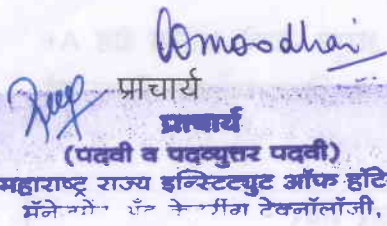 प्राचार्य
प्राचार्य
(पदवी व पदव्युत्तर पदवी)
महाराष्ट्र राज्य इन्स्टिट्युट ऑफ हॉटे
मॅनेजमेंट अँड केटरींग टेक्नॉलॉजी,